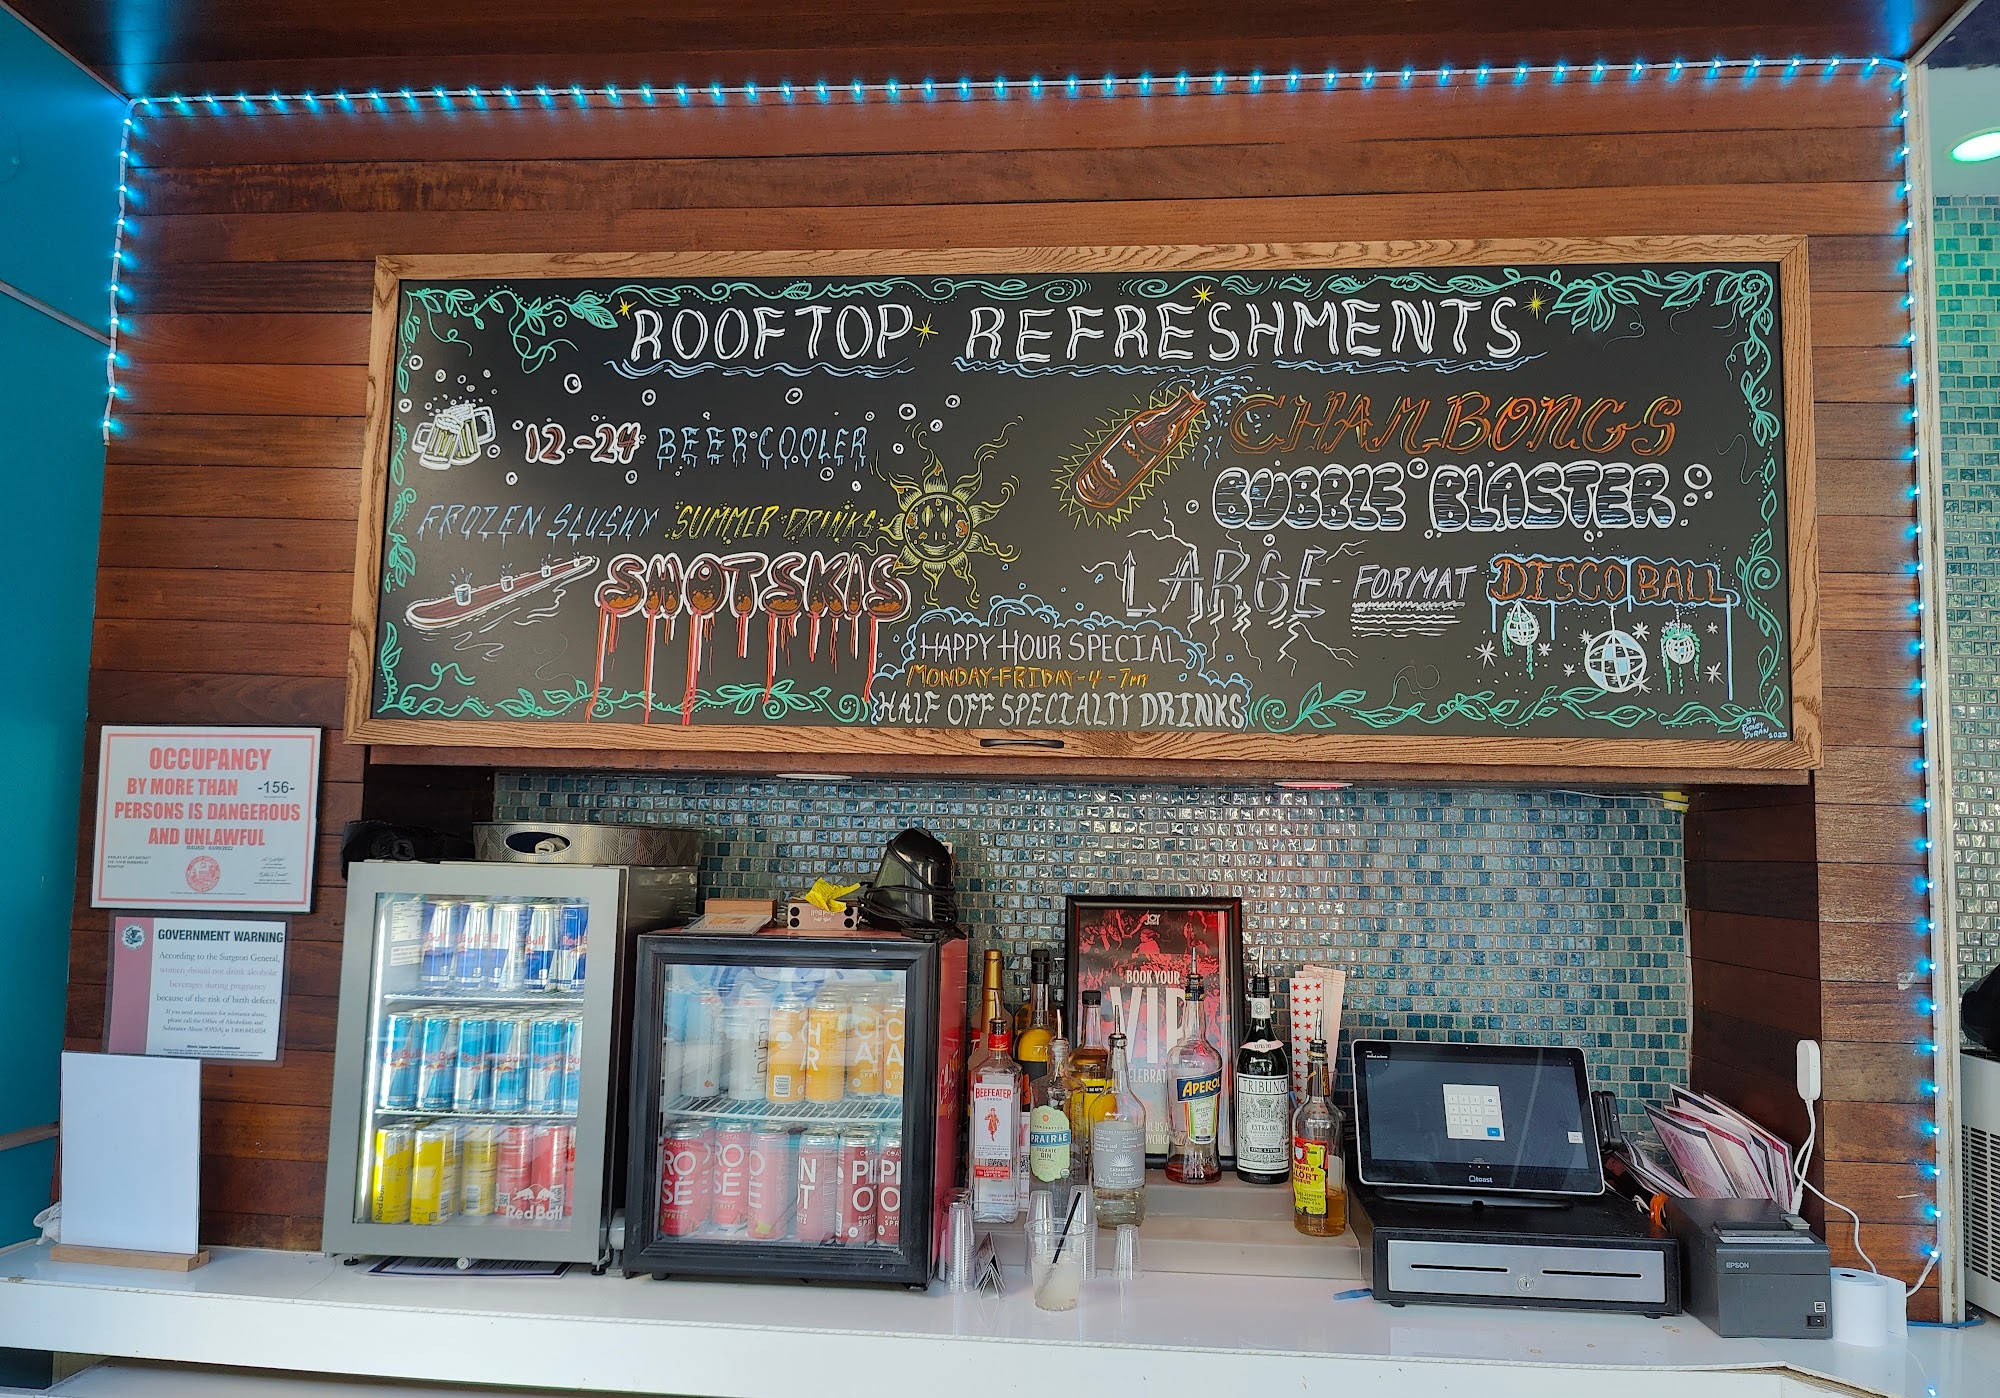 ROOFTOP REFRESHMENTS
12-24 BEER COOLER
FROZEN SLUSHY SUMMER DRINKS
SHOTSKIS
CHAMBONGS
BUBBLE BLASTER
LARGE-FORMAT DISCO BALL
HAPPY HOUR SPECIAL
MONDAY-FRIDAY-4-7PM
HALF OFF SPECIALTY DRINKS
BY
RODNEY
DURAN
2023
OCCUPANCY
BY MORE THAN -156-
PERSONS IS DANGEROUS
AND UNLAWFUL
ISSUED 03/09/2022
GOVERNMENT WARNING
According to the Surgeon General,
women should not drink alcoholic
beverages during pregnancy
because of the risk of birth defects.
If you need assistance for substance abuse,
please call the Office of Alcoholism and
Substance Abuse (OASA) at 1.800.843.6154.
Illinois Liquor Control Commission
Red Bull
ROSÉ
JOY
BOOK YOUR
VIP
BEEFEATER
LONDON
PRAIRIE
ORGANIC
GIN
APEROL
TRIBUNO
EXTRA DRY
toast
EPSON